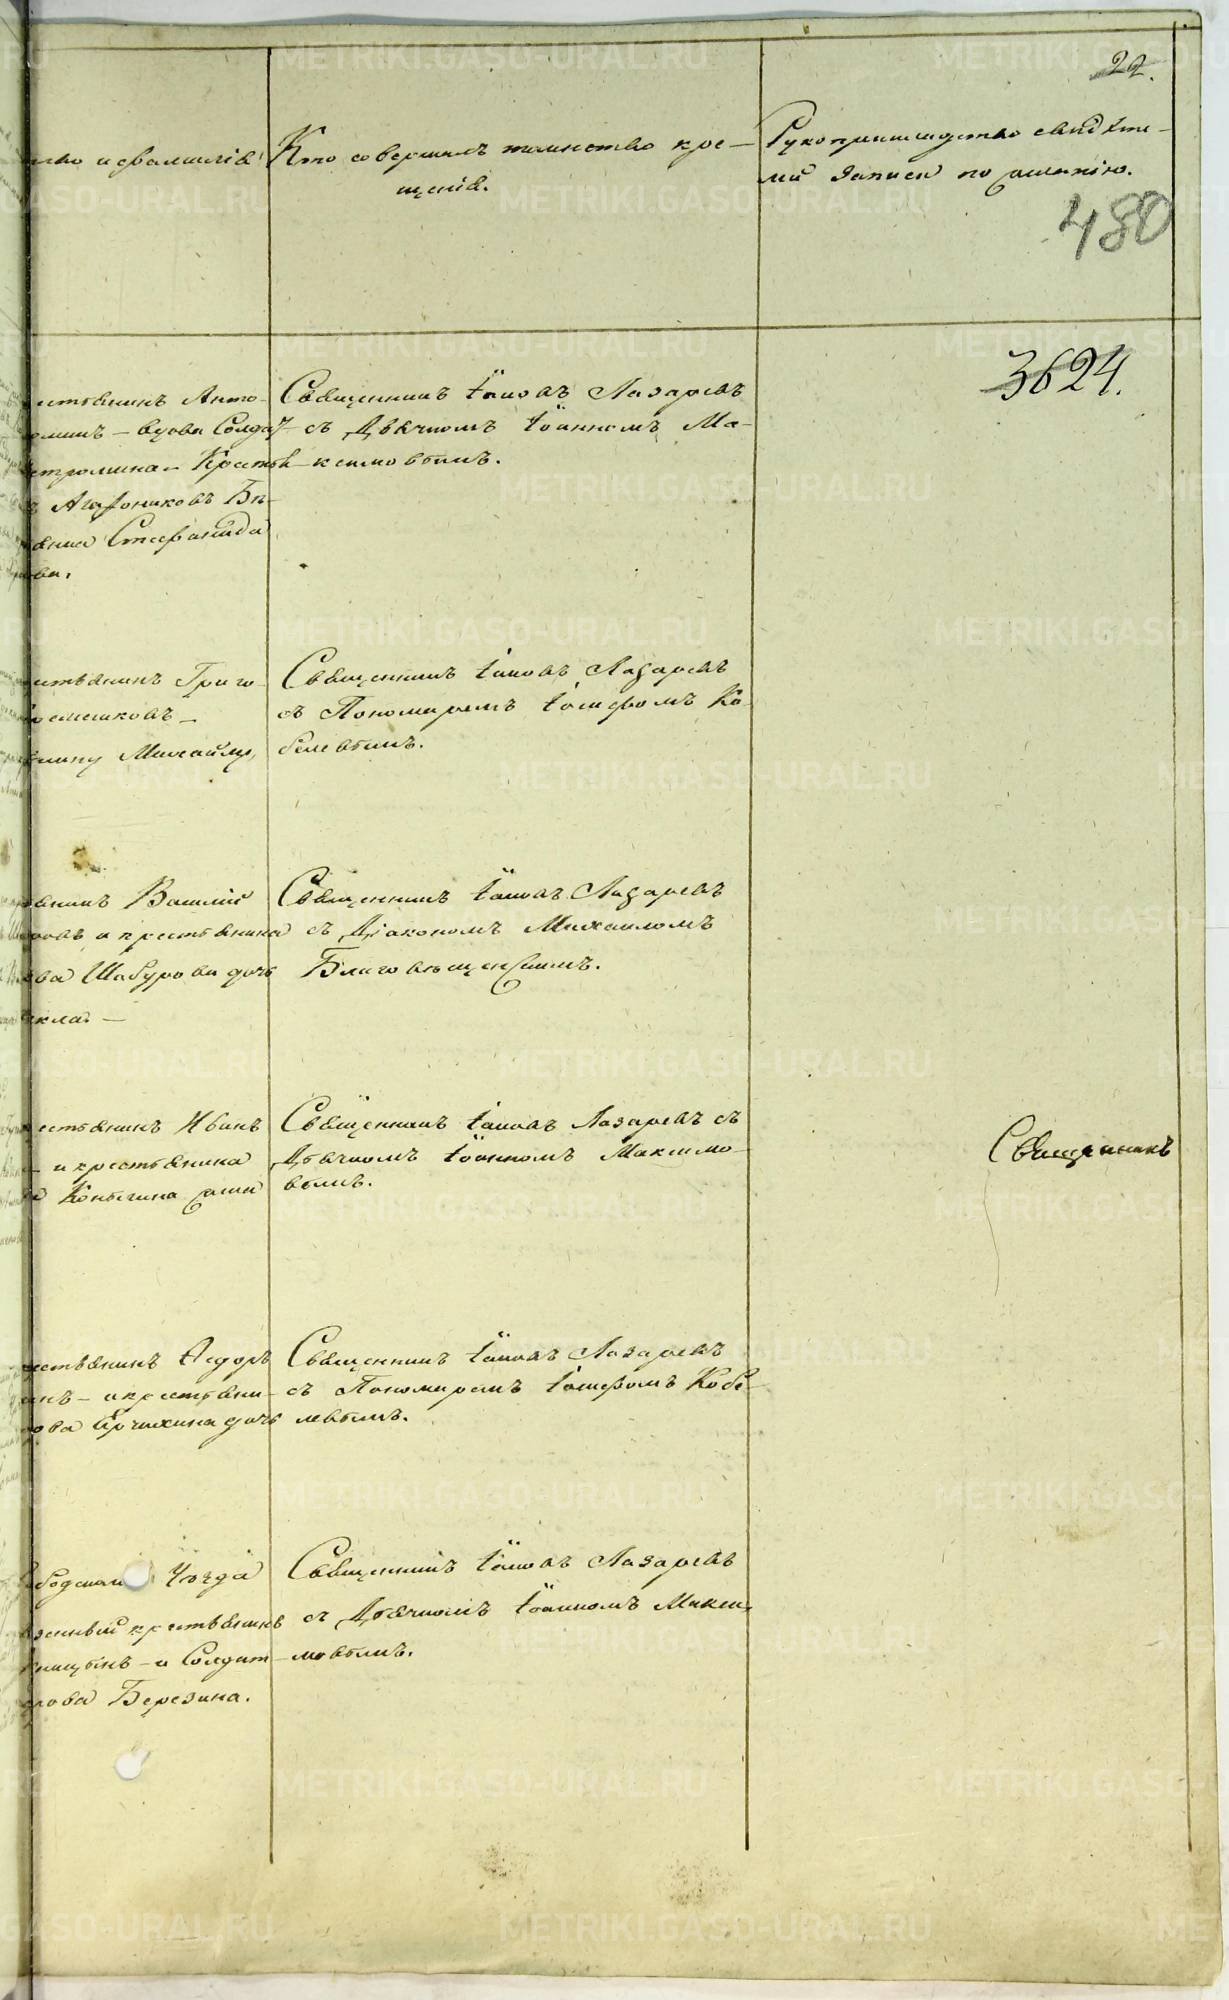 22.
ство и фамилія
Кто совершалъ таинство кре-
щенія.
Рукоприкладство свидѣте-
лей записи по желанію.
480
3624.
естьянинъ Анто-
оминъ – вдова Солдат-
стромина – Крестья
ъ Агафониковъ Бѣ-
янина Стефанида
ва.
Священникъ Іаковъ Лазаревъ
съ Дьячкомъ Іоанномъ Ма-
ксимовымъ.
естьянинъ Григо-
емешковъ –
янину Михайлу
Священникъ Іаковъ Лазаревъ
съ Пономаремъ Іосифомъ Ко-
белевымъ.
янинъ Василій
овъ, и крестьянина
ова Шабурова дочь
кла. –
Священникъ Іаковъ Лазаревъ
съ Діакономъ Михаиломъ
Благовѣщенскимъ.
естьянинъ Иванъ
– и крестьянина
Копытина
Священникъ Іаковъ Лазаревъ съ
Дьячкомъ Іоанномъ Максимо-
вымъ.
Священникъ
естьянинъ Ѳедоръ
инъ – и крестьяни-
ова Ярчихина дочь
Священникъ Іаковъ Лазаревъ
съ Пономаремъ Іосифомъ Кобе-
левымъ.
ободскаго Уѣзда
зенный крестьянинъ
ницынъ – и Солдат-
рова Березина.
Священникъ Іаковъ Лазаревъ
съ Дьячкомъ Іоанномъ Макси-
мовымъ.
METRIKI.GASO-URAL.RU